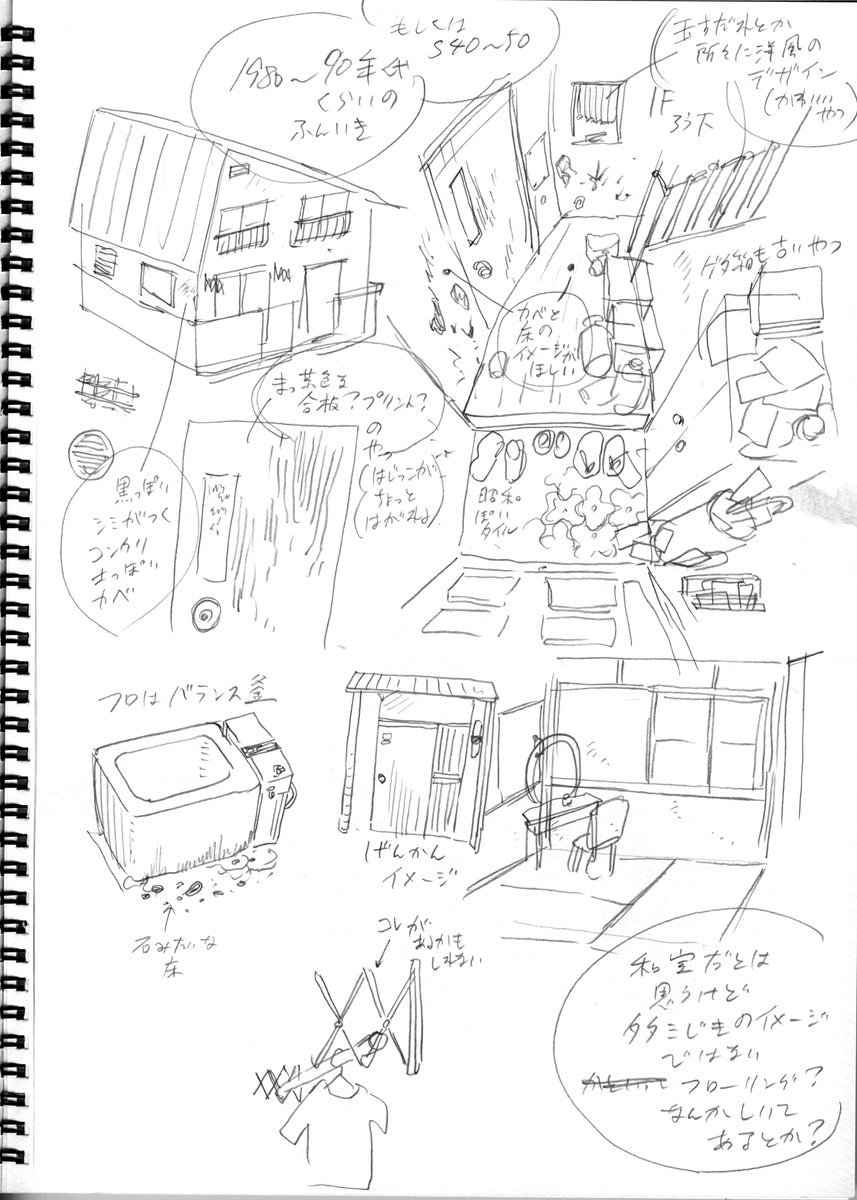 もしくは
S40〜50
1980〜90年代
くらいの
ふんいき
玉すだれとか
所々に洋風の
デザイン
(かわいい
やつ)
1F
ろう下
ゲタ箱も古いやつ
カベと
床の
イメージが
ほしい
まっ茶色な
合板?プリント?
の
やつ
(はじっこが
ちょっと
はがれる)
昭和
ぽい
タイル
黒っぽい
シミがつく
コンクリ
カベ
フロはバランス釜
石みたいな
床
げんかん
イメージ
コレが
あるかも
しれない
和室だとは
思うけど
タタミじきのイメージ
ではない
フローリング?
なんかしいて
あるとか?